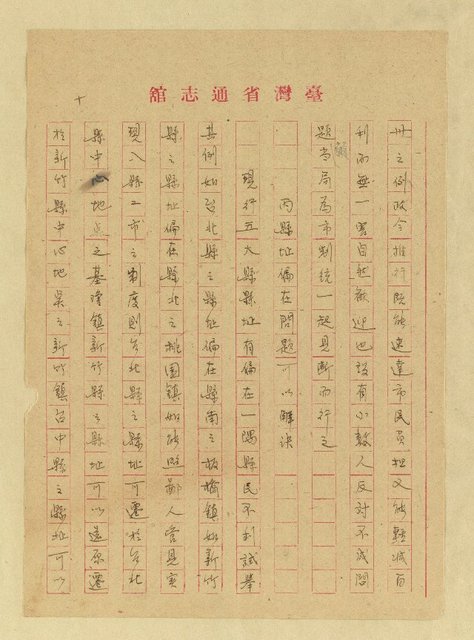 臺灣省通志館
卅之例政令推行既能速達市民負担又能輕減百
利而無一害自然歡迎也設有小数人反对不成問
題当局為市制統一起見断而行之
丙縣址偏在問題可以解决
現行五大縣縣址有偏在一隅縣民不利試舉
其例如台北縣之縣址偏在縣南之板橋鎮如新竹
縣之縣址偏在縣北之桃園鎮如能照鄙人管見实
現入縣二市之制度則台北縣之縣址可遷於台北
縣中心地点之基隆鎮新竹縣之縣址可以還原遷
於新竹縣中心地点之新竹鎮台中縣之縣址可以
十